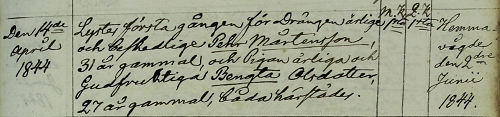 Den 14de April 1844
Lystes första gången för Drängen ärlige
och beskedlige Pehr Mårtensson,
31 år gammal, och Pigan ärliga och
Gudfruktiga Bengta Olsdatter,
27 år gammal, båda härstädes.
Hemma-
vigde
den 2dre
Junii
1844.